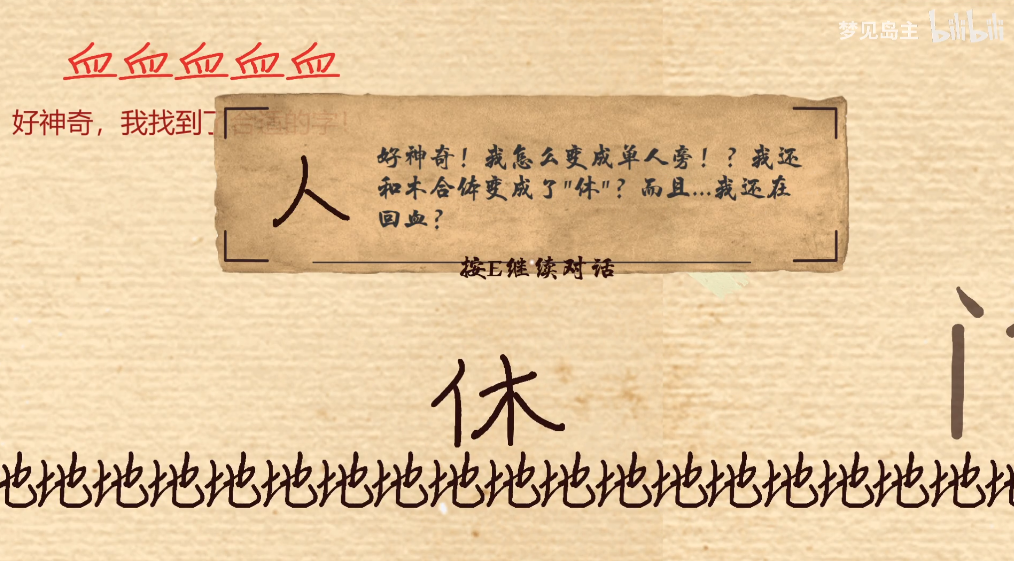 梦见岛主 bilibili
血血血血血
好神奇，我找到了合适的字！
人
好神奇！我怎么变成单人旁！？我还
和木合体变成了"休"？而且...我还在
回血？
按E继续对话
休
门
地地地地地地地地地地地地地地地地地地地